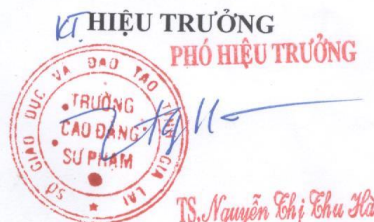 KT. HIỆU TRƯỞNG
PHÓ HIỆU TRƯỞNG
SỞ GIÁO DỤC VÀ ĐÀO TẠO TỈNH GIA LAI
TRƯỜNG
CAO ĐẲNG
SƯ PHẠM
TS. Nguyễn Thị Thu Hà